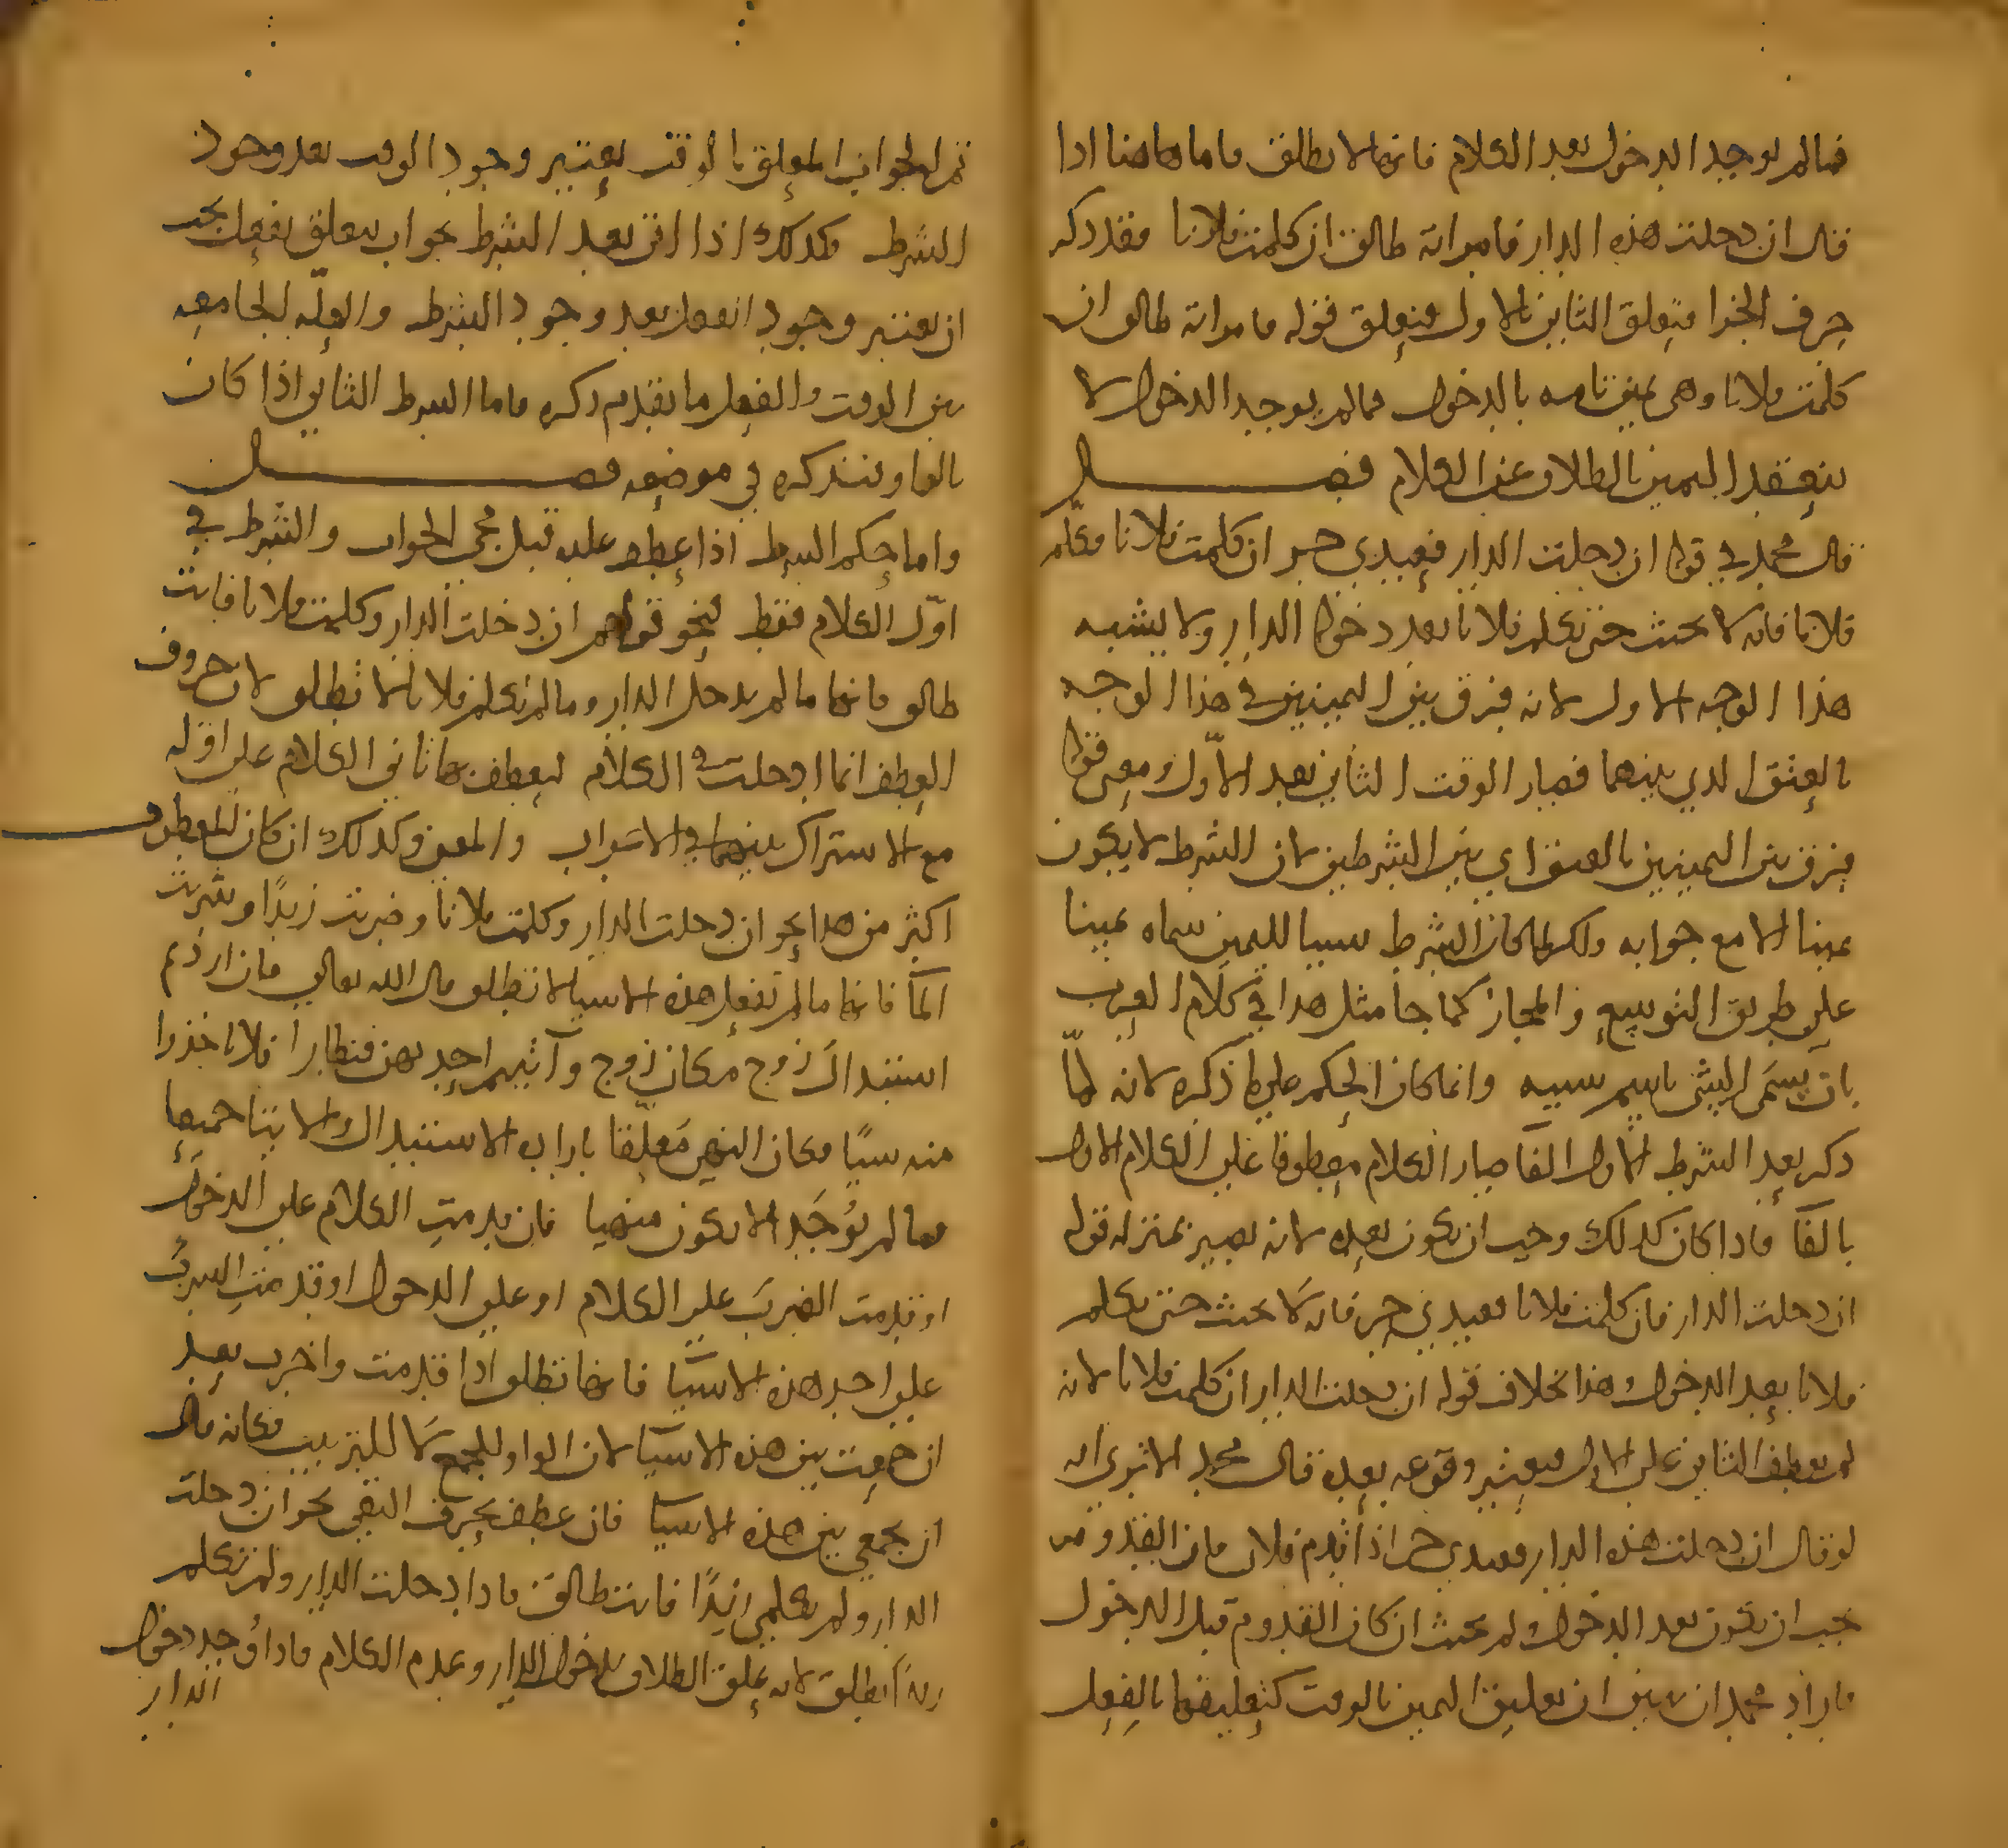 فما لم يوجد الدخول بعد الكلام فانها لا تطلق فاما هاهنا اذا
قال ان دخلت هذه الدار فامراته طالق ان كلمت فلانا فقد ذكر
حرف الجزا فتعلق الثاني بالاول فيتعلق قوله فامراته طالق ان
كلمت فلانا وهي يمين تامه بالدخول فما لم يوجد الدخول لا
ينعقد اليمين بالطلاق عند الكلام فصل
قال محمد في قوله ان دخلت الدار فعبدي حر ان كلمت فلانا فكلم
فلانا فانه لا يحنث حتى يكلم فلانا بعد دخوله الدار ولا يشبه
هذا الوجه الاول لانه فرق بين اليمينين في هذا الوجه
بالعتق الذي بينهما فصار الوقت الثاني بعد الاول ومعنى قوله
فرق بين اليمينين بالعتق اي بين الشرطين لان الشرط لا يكون
يمينا الا مع جوابه ولكن لما كان الشرط سببا لليمين سماه يمينا
على طريق التوسع والمجاز كما جا مثل هذا في كلام العرب
بان يسمى الشي باسم سببه وانما كان الحكم على ما ذكره لانه لما
ذكر بعد الشرط الاول الفا صار الكلام معطوفا على الكلام الاول
بالفا فاذا كان كذلك وجب ان يكون بعده لانه يصير بمنزله قوله
ان دخلت الدار فان كلمت فلانا فعبدي حر فانه لا يحنث حتى يكلم
فلانا بعد الدخول وهذا بخلاف قوله ان دخلت الدار ان كلمت فلانا لانه
لم يعطف الثاني على الاول فيعتبر وقوعه بعده فقال محمد الا ترى انه
لو قال ان دخلت هذه الدار فعبدي حر اذا قدم فلان فان القدوم
يجب ان يكون بعد الدخول ولم يحنث ان كان القدوم قبل الدخول
فاراد محمد ان يبين ان تعليق اليمين بالوقت كتعليقها بالفعل
ثم الجواب المعلق بالوقت يعتبر وجود الوقت بعد وجود
الشرط فكذلك اذا اتى بعد الشرط بجواب يتعلق بفعل يجب
ان يعتبر وجود الفعل بعد وجود الشرط والعلّه الجامعه
بين الوقت والفعل ما تقدم ذكره فاما الشرط الثاني اذا كان
بالواو فنذكره في موضعه فصل
واما حكم الشرط اذا عطف عليه قبل مجي الجواب والشرط في
اوّل الكلام فقط نحو قولهم ان دخلت الدار وكلمت فلانا فانت
طالق فانها ما لم تدخل الدار وما لم تكلم فلانا لا تطلق لان حروف
العطف انما ادخلت في الكلام ليعطف بها ثاني الكلام على اوله
مع الاشتراك بينهما في الاعراب والمعنى وكذلك ان كان المعطوف
اكثر من هذا نحو ان دخلت الدار وكلمت فلانا وضربت زيدًا وشربت
المآ فانها ما لم تفعل هذه الاشيا لا تطلق قال الله تعالى فان اردتم
استبدال زوج مكان زوج وآتيتم احديهن قنطارا فلا تاخذوا
منه شيًا فكان النهي مُعلّقا بارادة الاستبدال والايتا جميعا
فما لم يُوجَد لا يكون منهيا فان قدمتِ الكلام على الدخول
او قدمت الضربَ على الكلام او على الدخول او قدمتِ الشربَ
على احد هذه الاشيآ فانها تطلق اذا قدمت واخرت بعد
ان جمعت بين هذه الاشيآ لان الواو للجمع لا للترتيب فكانه قال
ان تجمعي بين هذه الاشيا فان عطف بحرف النفي نحو ان دخلت
الدار ولم تكلمي زيدًا فانت طالق فاذا دخلت الدار ولم تكلم
زيدًا تطلق لانه علق الطلاق بدخول الدار وعدم الكلام فاذا وُجد دخول
الدار